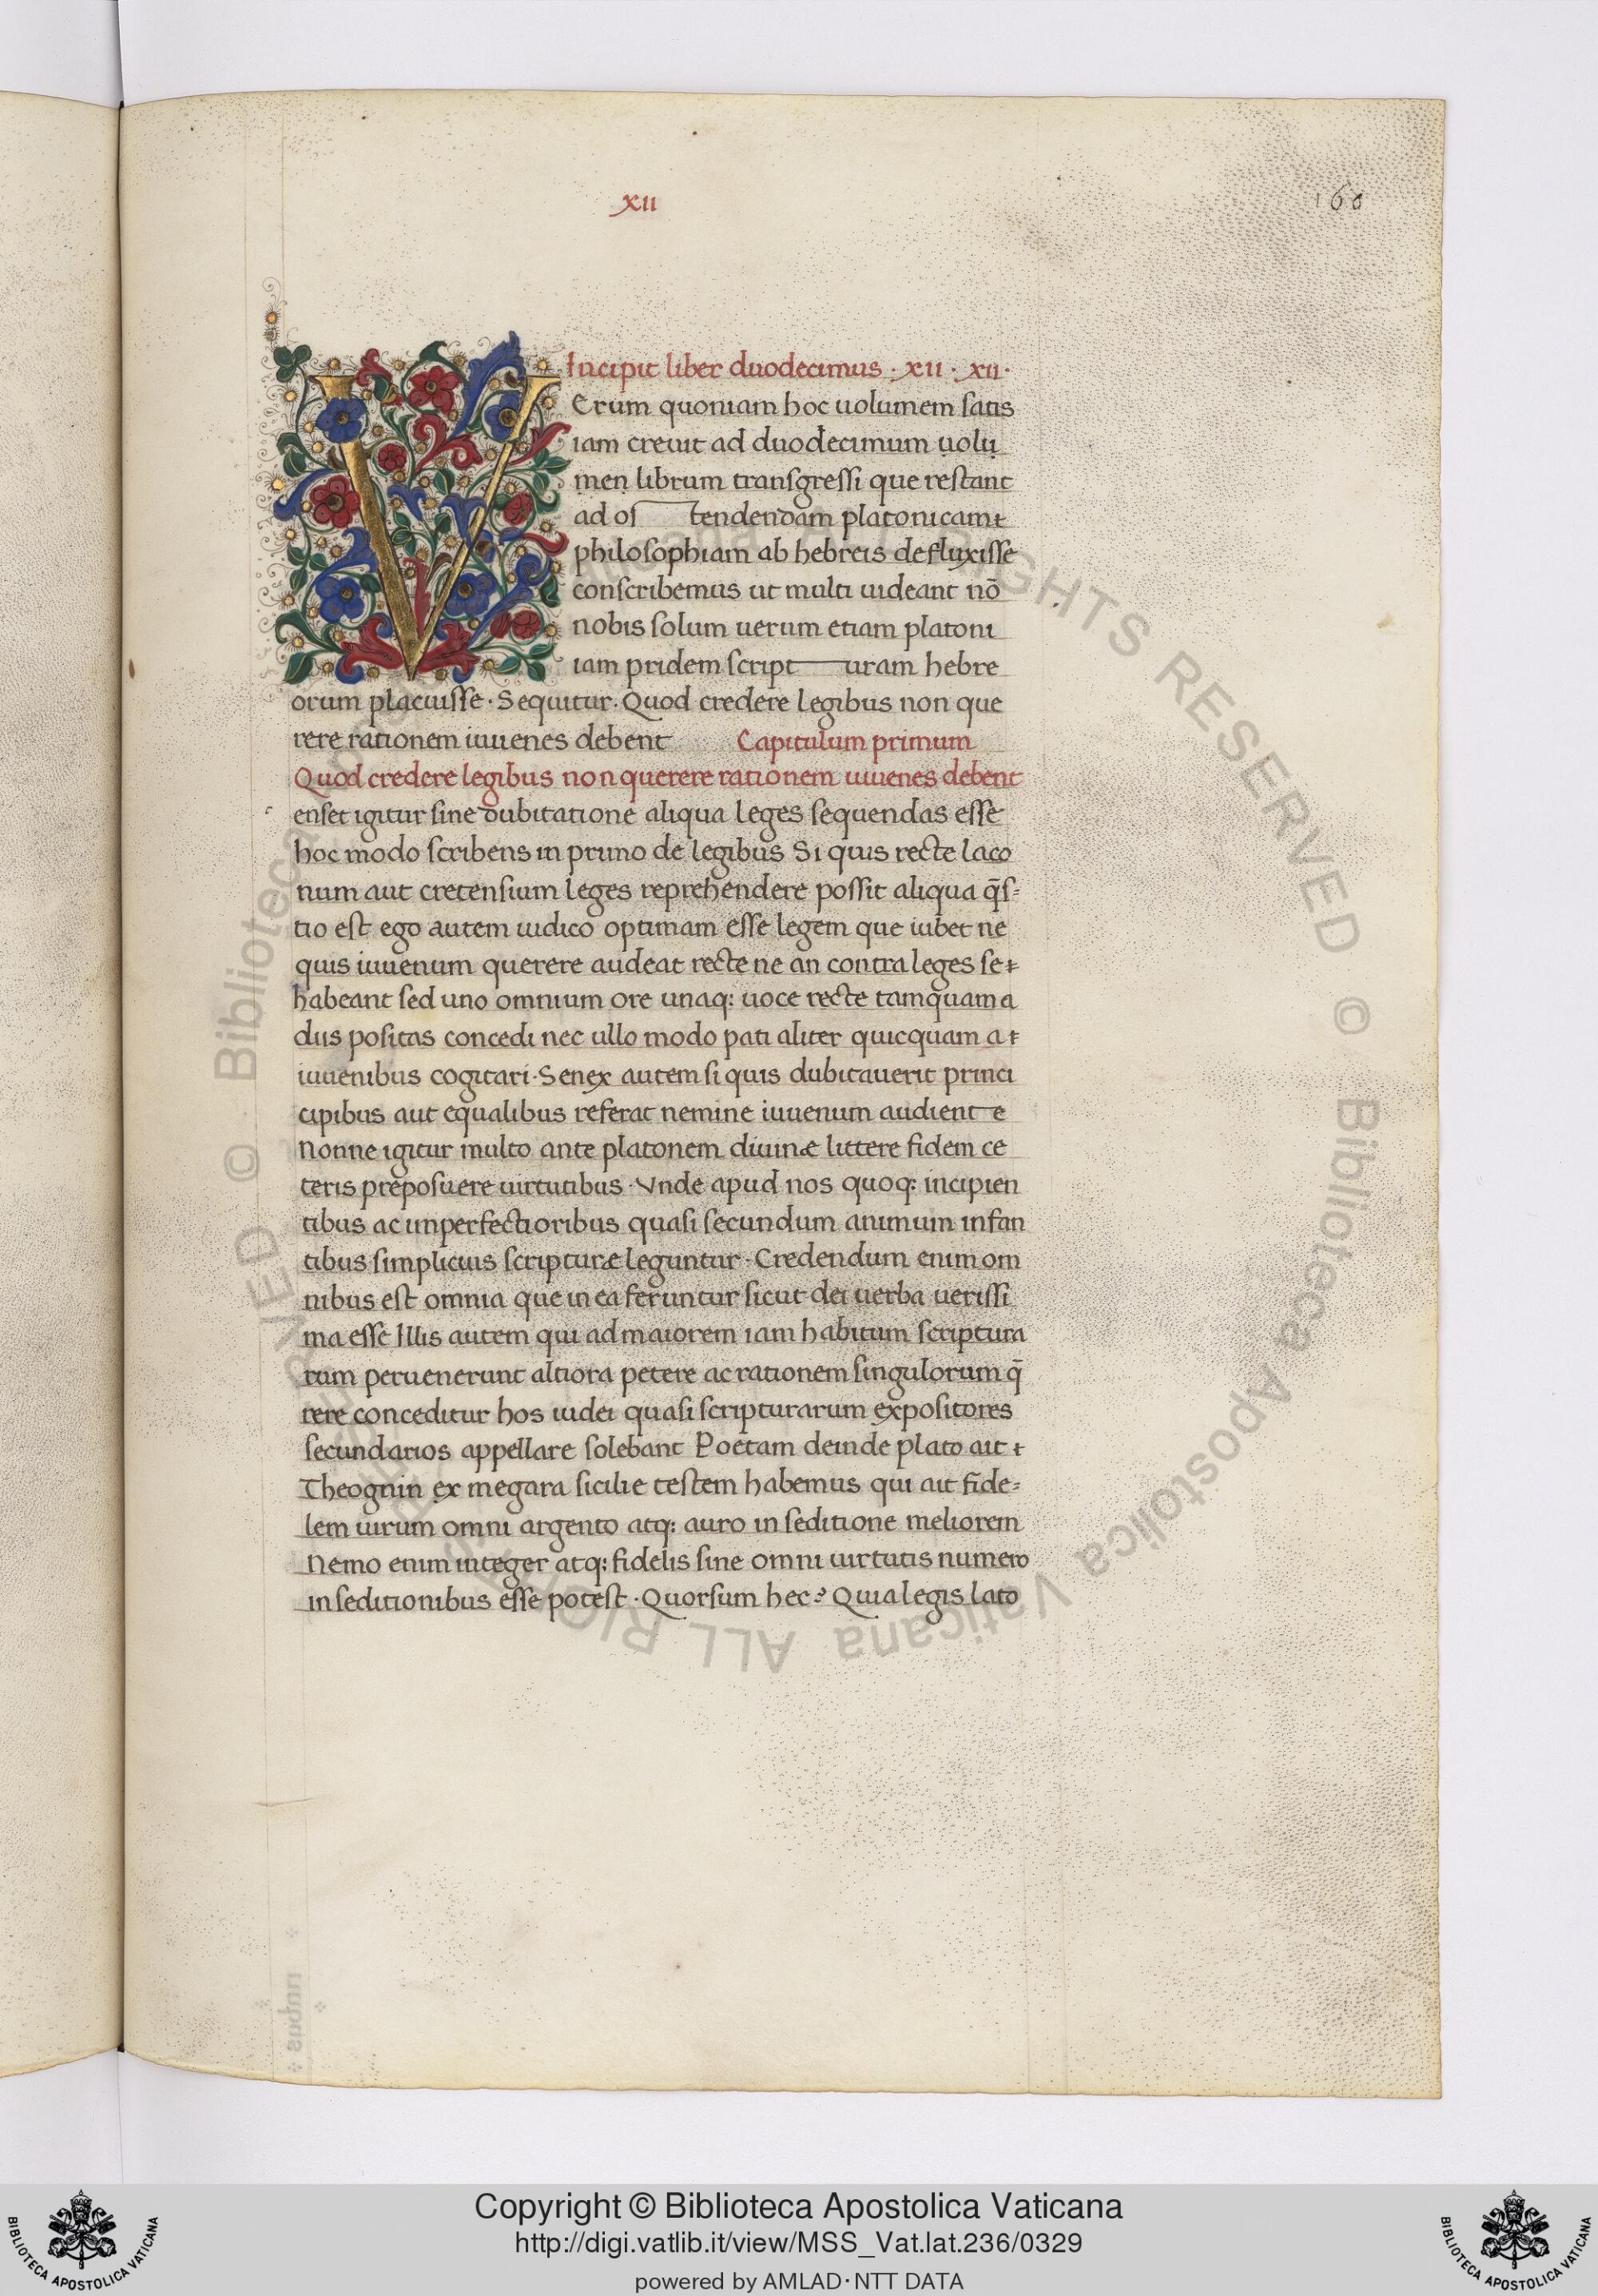 xii
160
Incipit liber duodecimus · xii · xii ·
VErum quoniam hoc uolumem satis
iam creuit ad duodecimum uolu
men librum transgressi que restant
ad os tendendam platonicam
philosophiam ab hebreis defluxisse
conscribemus ut multi uideant nō
nobis solum uerum etiam platoni
iam pridem script uram hebre
orum placuisse · Sequitur · Quod credere legibus non que
rere rationem iuuenes debent Capitulum primum
Quod credere legibus non querere rationem iuuenes debent
c enset igitur sine dubitatione aliqua leges sequendas esse
hoc modo scribens in primo de legibus Si quis recte laco
num aut cretensium leges reprehendere possit aliqua q̄s=
tio est ego autem iudico optimam esse legem que iubet ne
quis iuuenum querere audeat recte ne an contra leges se
habeant sed uno omnium ore unaq: uoce recte tamquam a
diis positas concedi nec ullo modo pati aliter quicquam a
iuuenibus cogitari · Senex autem si quis dubitauerit princi
cipibus aut equalibus referat nemine iuuenum audiente
Nonne igitur multo ante platonem diuinæ littere fidem ce
teris preposuere uirtutibus · Vnde apud nos quoq: incipien
tibus ac imperfectioribus quasi secundum animum infan
tibus simplicius scripturæ leguntur · Credendum enim om
nibus est omnia que in ea feruntur sicut dei uerba uerissi
ma esse Illis autem qui ad maiorem iam habitum scriptura
rum peruenerunt altiora petere ac rationem singulorum q̄
rere conceditur hos iudei quasi scripturarum expositores
secundarios appellare solebant Poetam deinde plato ait
Theognin ex megara sicilie testem habemus qui ait fide=
lem uirum omni argento atq: auro in seditione meliorem
Nemo enim integer atq: fidelis sine omni uirtutis numero
in seditionibus esse potest · Quorsum hec? Quia legis lato
© Biblioteca Apostolica Vaticana ALL RIGHTS RESERVED
© Biblioteca Apostolica Vaticana ALL RIGHTS RESERVED
Copyright © Biblioteca Apostolica Vaticana
http://digi.vatlib.it/view/MSS_Vat.lat.236/0329
powered by AMLAD·NTT DATA
BIBLIOTECA APOSTOLICA VATICANA
BIBLIOTECA APOSTOLICA VATICANA